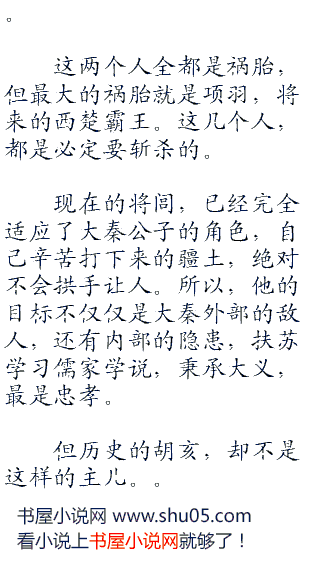 。
这两个人全都是祸胎，
但最大的祸胎就是项羽，将
来的西楚霸王。这几个人，
都是必定要斩杀的。
现在的将闾，已经完全
适应了大秦公子的角色，自
己辛苦打下来的疆土，绝对
不会拱手让人。所以，他的
目标不仅仅是大秦外部的敌
人，还有内部的隐患，扶苏
学习儒家学说，秉承大义，
最是忠孝。
但历史的胡亥，却不是
这样的主儿。。
书屋小说网 www.shu05.com
看小说上书屋小说网就够了！